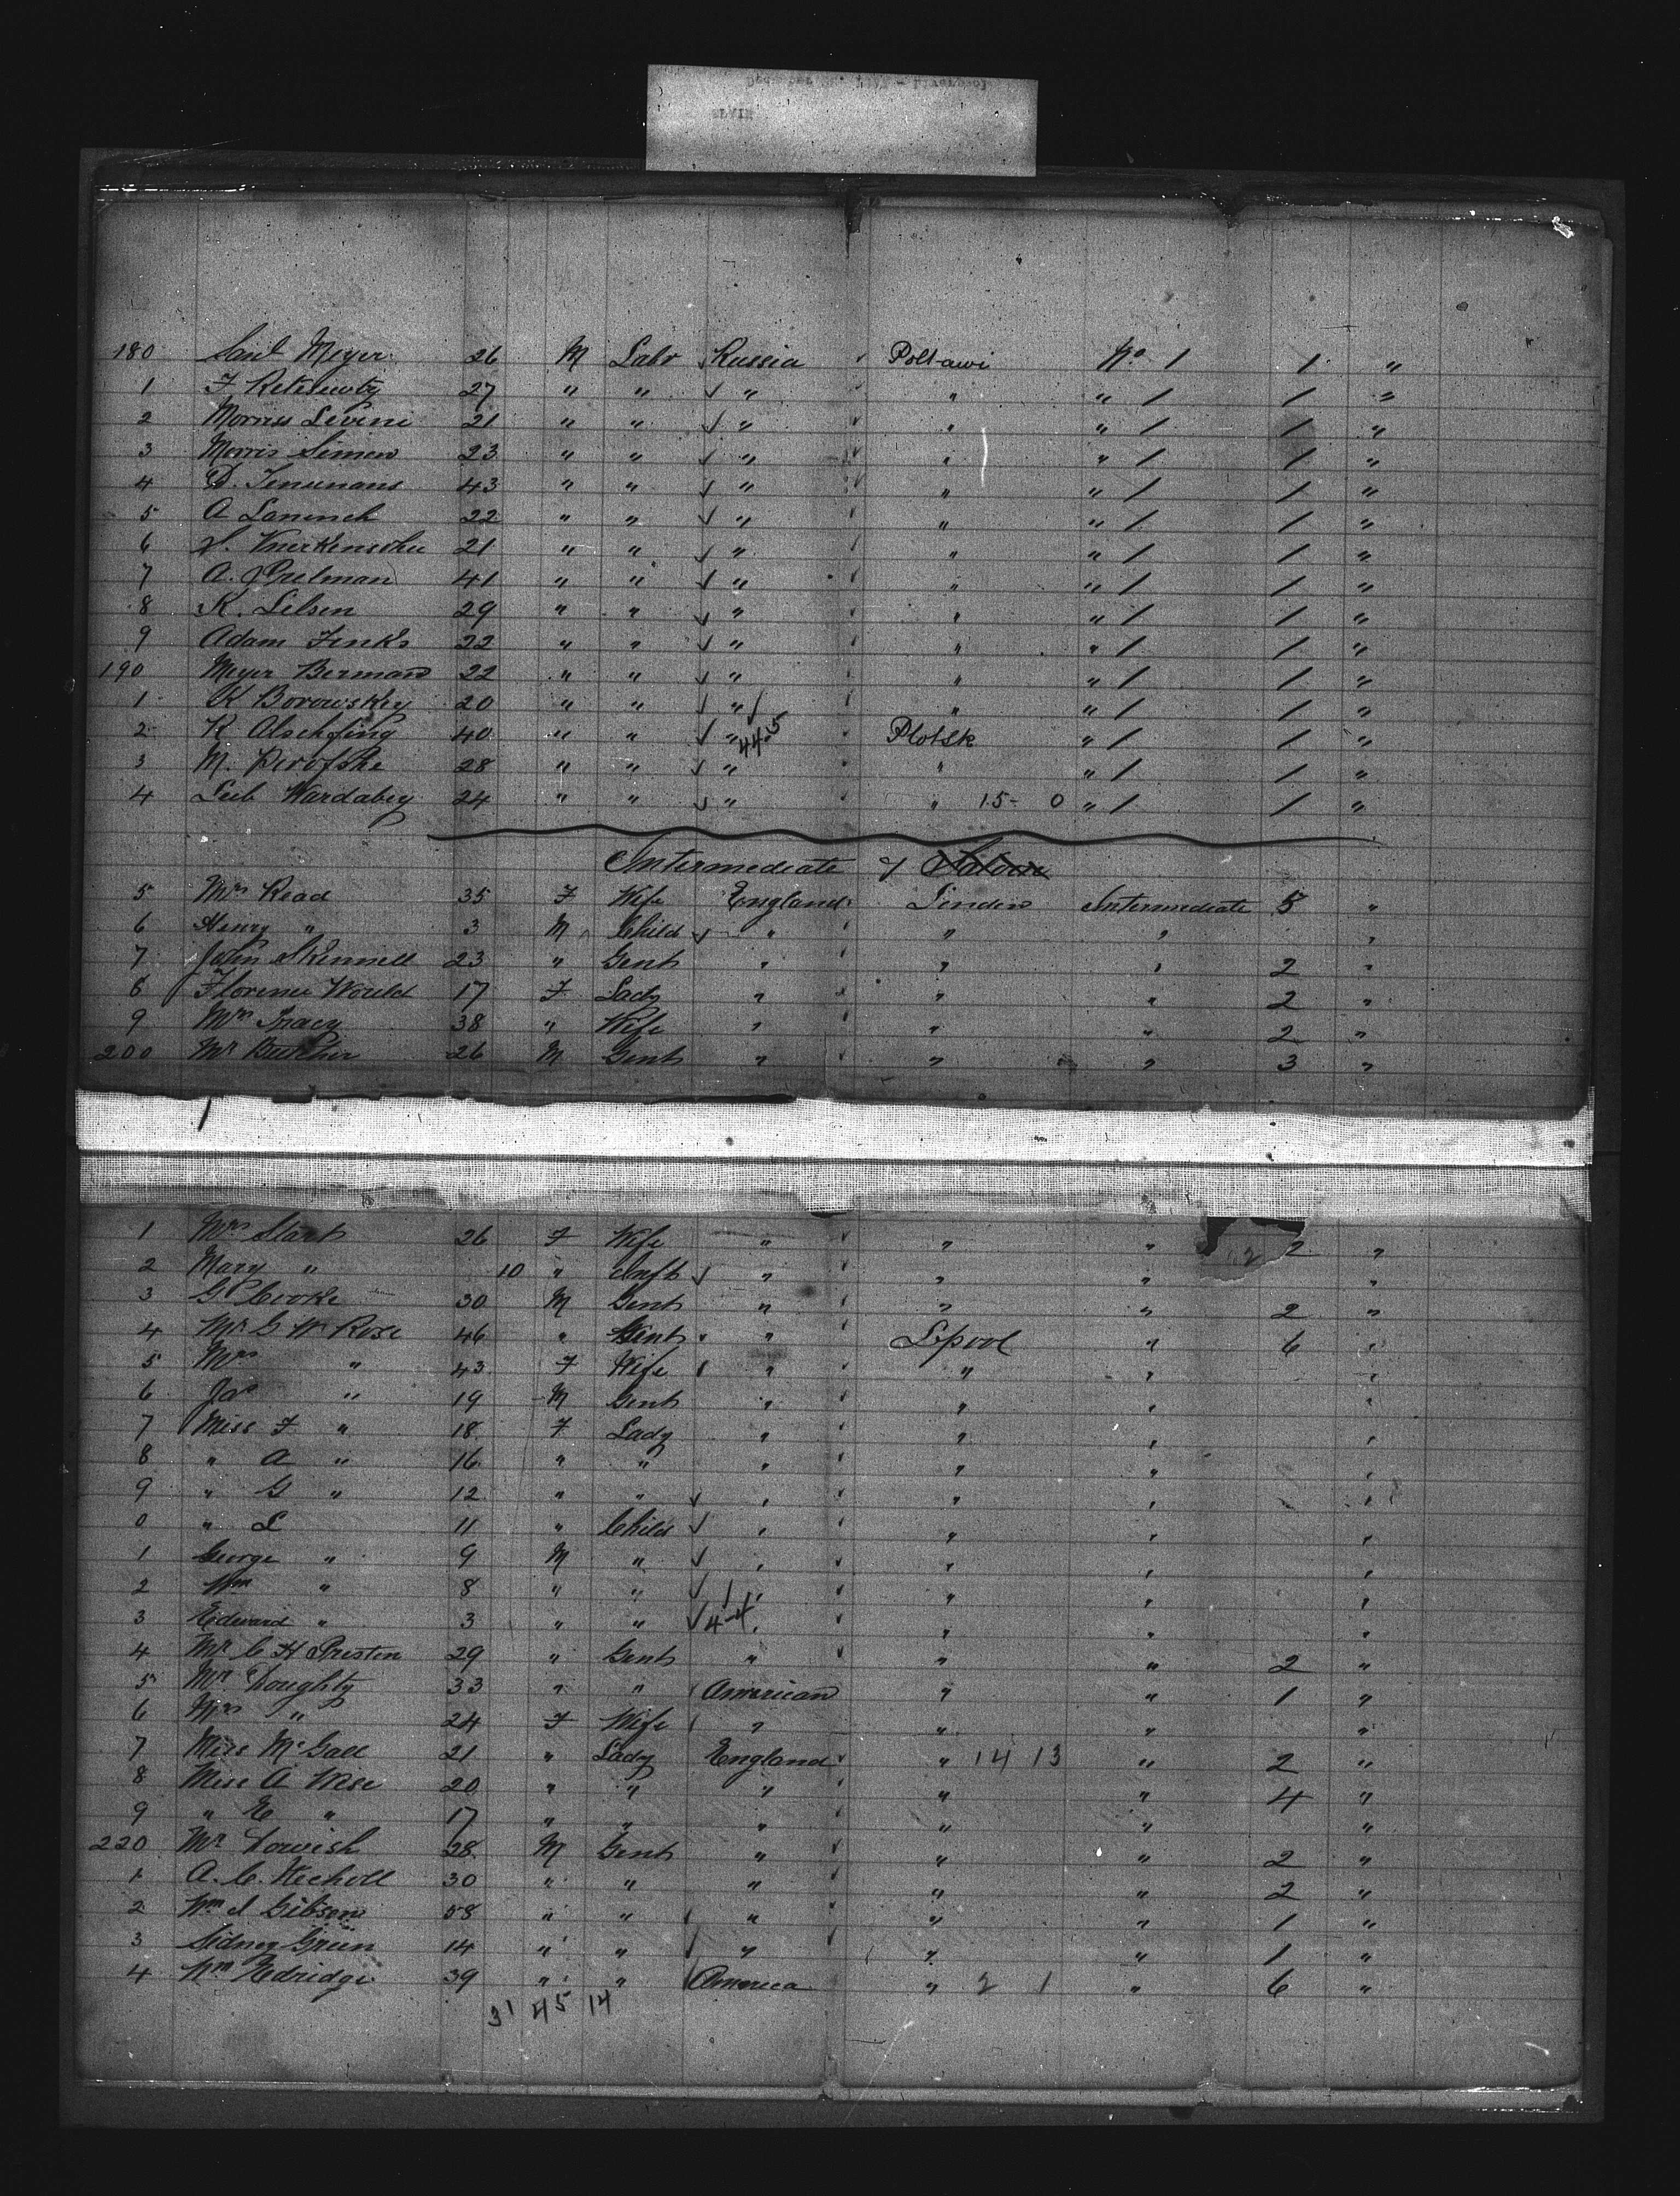 180 Saul Meyer 26 M Labr Russia Poltawi No 1 1 "
1 F 27 " " " " " 1 1 "
2 Morriss Levine 21 " " " " " 1 1 "
3 Morris Simon 23 " " " " " 1 1 "
4 D. 43 " " " " " 1 1 "
5 A 22 " " " " " 1 1 "
6 21 " " " " " 1 1 "
7 A. 41 " " " " " 1 1 "
8 K. Lilsen 29 " " " " " 1 1 "
9 Adam Finks 22 " " " " " 1 1 "
190 Meyer Berman 22 " " " " " 1 1 "
1 K Borowskey 20 " " " " " 1 1 "
2 R 40 " " " 44-5 Plotsk " 1 1 "
3 M. 28 " " " " " 1 1 "
4 Leib Wardabey 24 " " " " 15- 0 " 1 1 "
Intermediate & Saloon
5 Mrs Read 35 F Wife England Intermediate 5 "
6 Henry " 3 M Child " " " "
7 John Skinnell 23 " Gent " " " 2 "
8 Florence Would 17 F Lady " " " 2 "
9 Mrs Tracy 38 " Wife " " " 2 "
200 Mr Butcher 26 M Gent " " " 3 "
1 Mrs Start 26 F Wife " " " 2 "
2 Mary " 10 " Inft " " " "
3 G P Cooke 30 M Gent " " " 2 "
4 Mr G W Rose 46 " Gent " Lpool " 6 "
5 Mrs " 43 F Wife " " " "
6 Jas " 19 M Gent " " " "
7 Miss F " 18 F Lady " " " "
8 " A " 16 " " " " " "
9 " G " 12 " " " " " "
0 " L 11 " Child " " " "
1 George " 9 M " " " " "
2 Wm " 8 " " " " " "
3 Edward " 3 " " 4-4 " " " "
4 Mr C H Preston 29 " Gent " " " 2 "
5 Mr Doughty 33 " " American " " 1 "
6 Mrs " 24 F Wife " " " "
7 Miss McGall 21 " Lady England " 14 13 " 2 "
8 Miss A Wise 20 " " " " " 4 "
9 " E " 17 " " " " " "
220 Mr Dowish 28 M Gent " " " 2 "
1 A. C. 30 " " " " " 2 "
2 Wm I Gibson 58 " " " " " 1 "
3 Sidney Green 14 " " " " " 1 "
4 Wm Edridge 39 " " America " 2 1 " 6 "
31 45 14